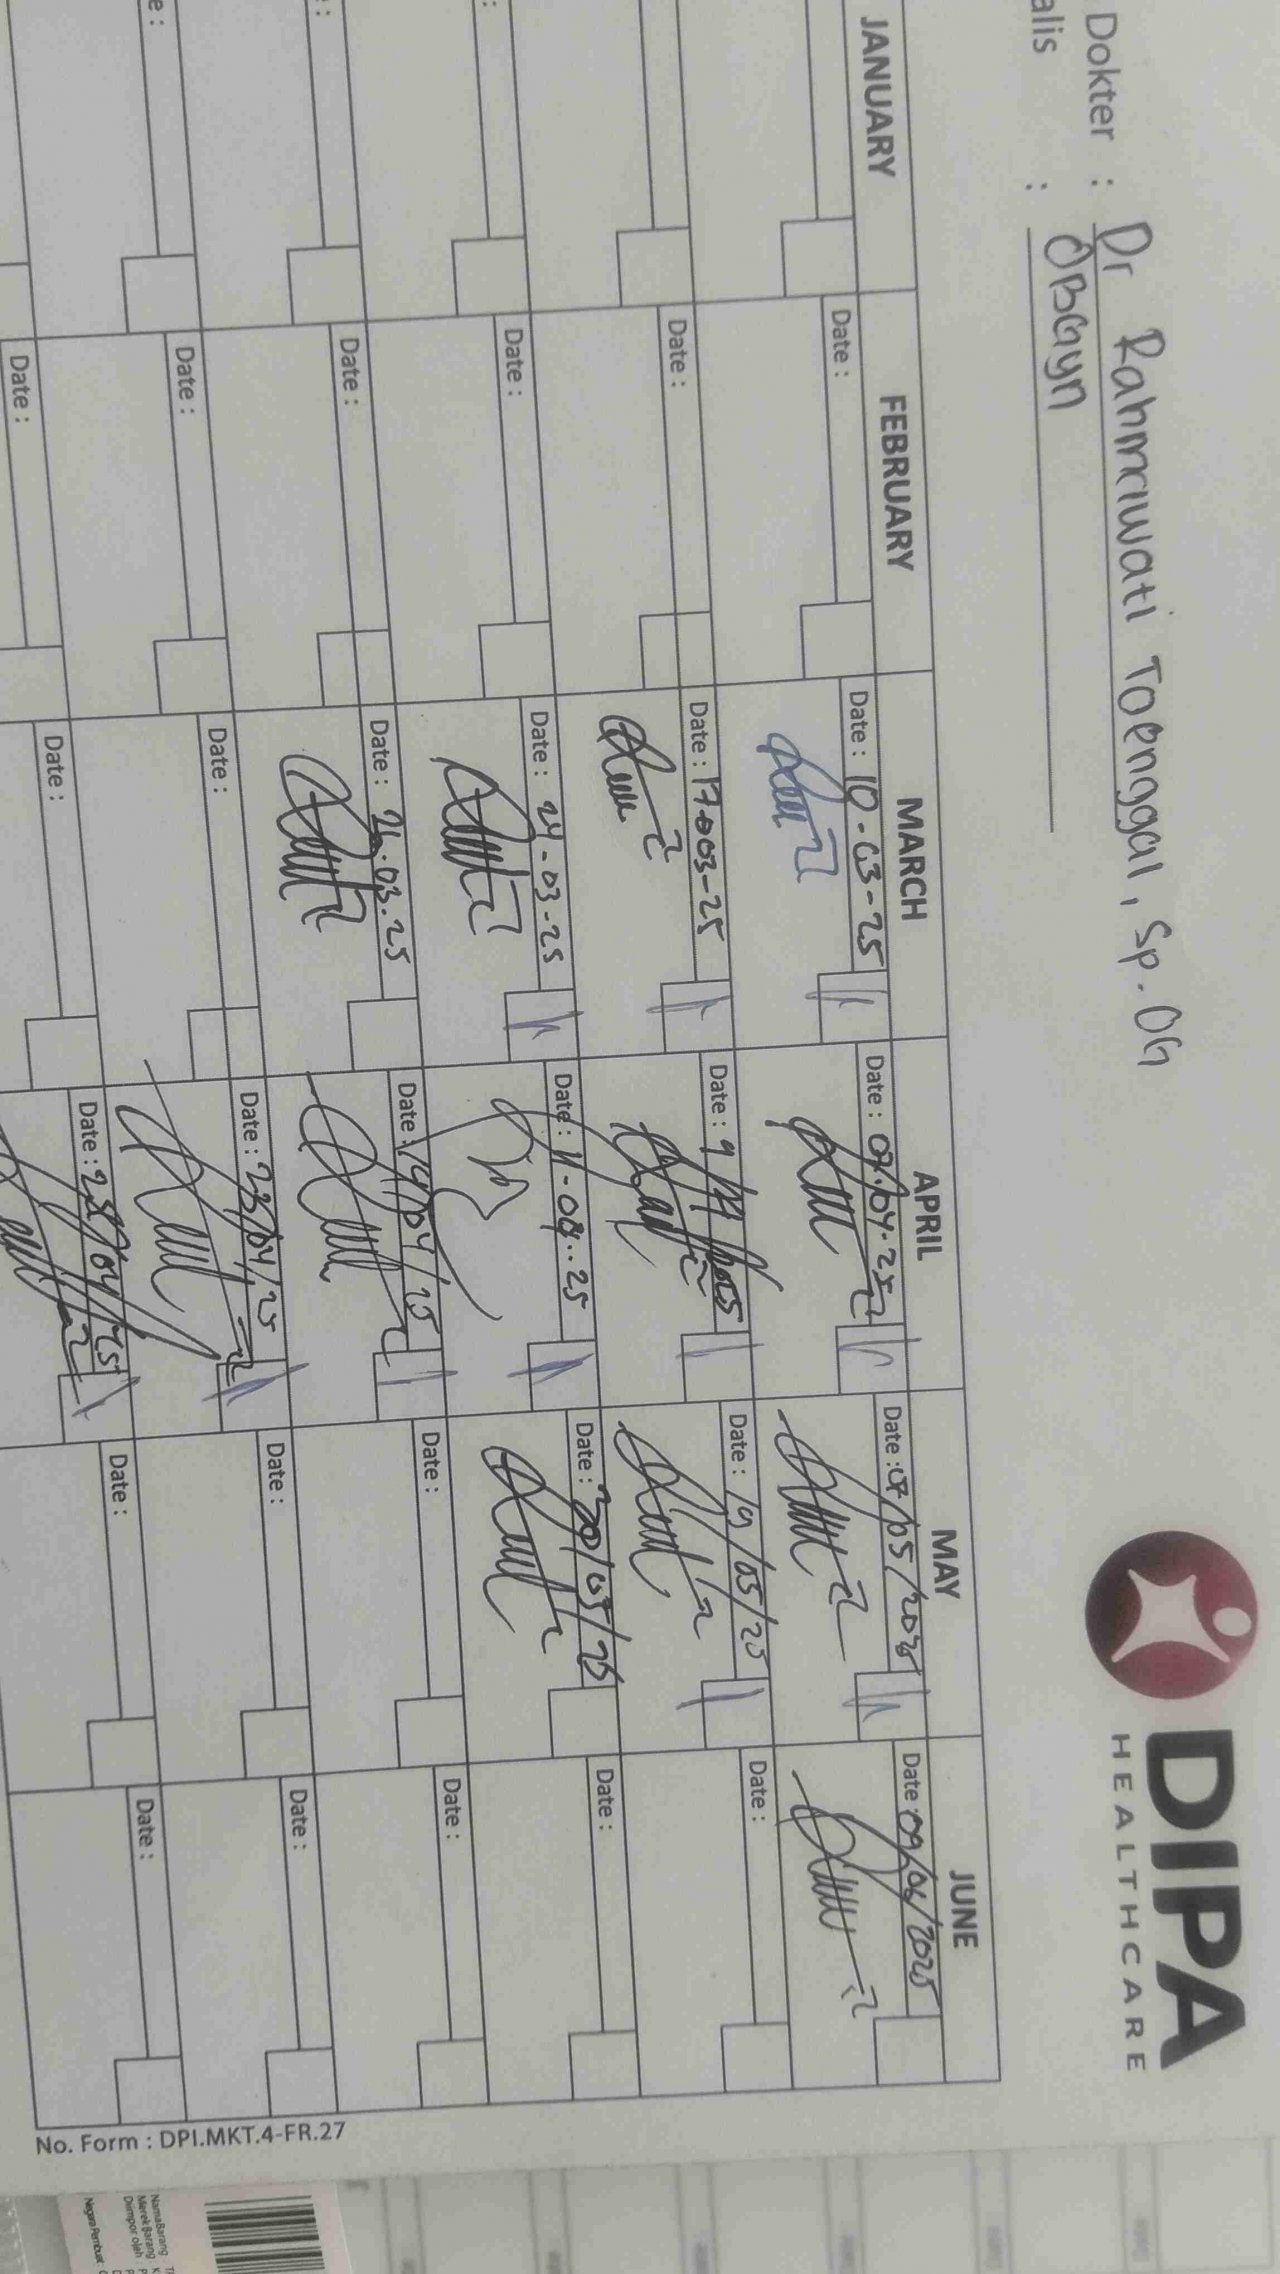 DIPA
HEALTHCARE
Dokter : Dr Rahmawati Toenggal, Sp.OG
alis : OBGyn
JANUARY FEBRUARY MARCH APRIL MAY JUNE
Date : Date : 10-03-25 Date : 07.04.25 Date : 07/05/2025 Date : 09/06/2025
: Date : Date : 17-03-25 Date : 9/04/2025 Date : 19/05/25 Date :
: Date : Date : 24-03-25 Date : 11-04-25 Date : 30/05/25 Date :
e : Date : Date : 26.03.25 Date : 14/04/25 Date : Date :
Date : Date : Date : 23/04/25 Date : Date :
Date : Date : 28/04/25 Date : Date :
No. Form : DPI.MKT.4-FR.27
Nama Barang
Merek Barang
Diimpor oleh
Negara Pembuat